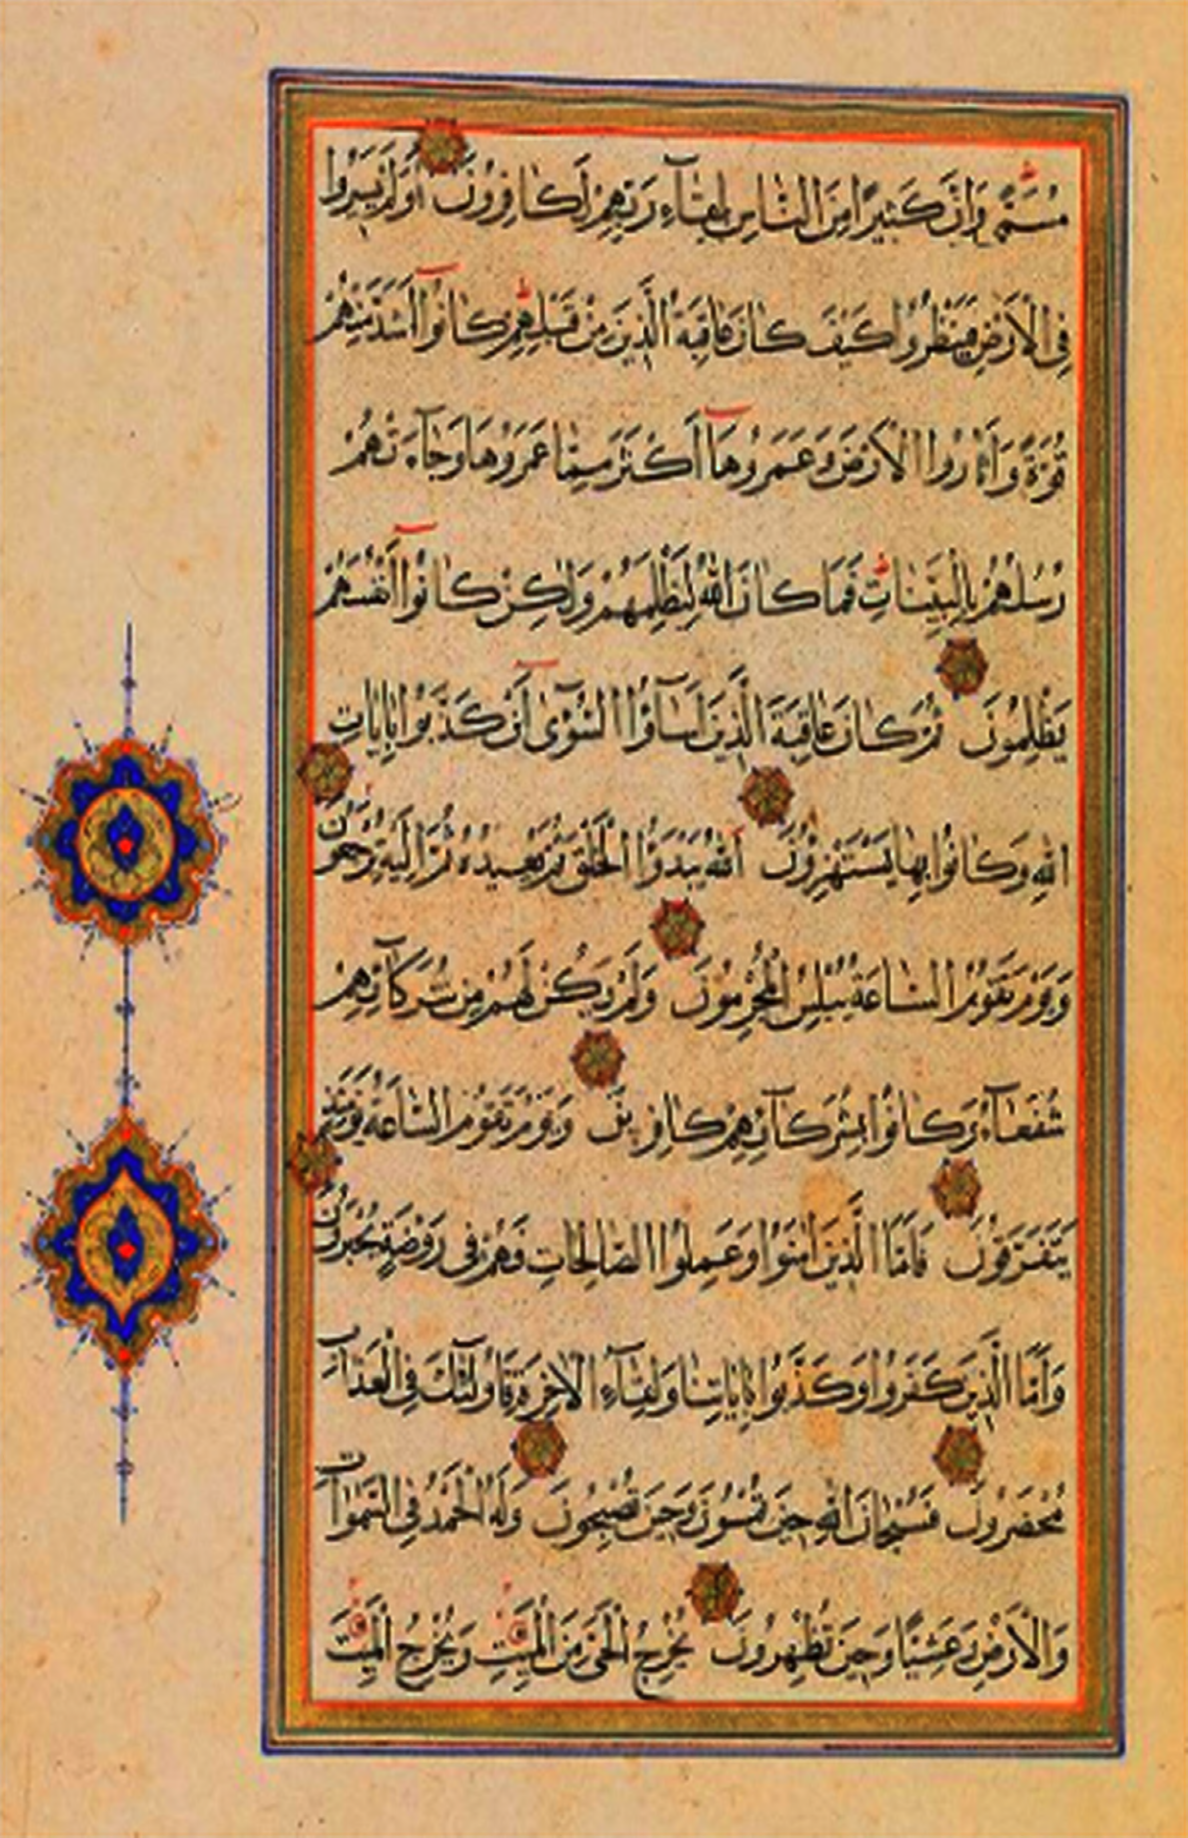 مُسَمًّى وَاِنَّ كَثِيرًا مِنَ النَّاسِ بِلِقَآءِ رَبِّهِمْ لَكَافِرُونَ اَوَلَمْ يَسِيرُوا
فِي الْاَرْضِ فَيَنْظُرُوا كَيْفَ كَانَ عَاقِبَةُ الَّذِينَ مِنْ قَبْلِهِمْ كَانُوٓا اَشَدَّ مِنْهُمْ
قُوَّةً وَاَثَارُوا الْاَرْضَ وَعَمَرُوهَآ اَكْثَرَ مِمَّا عَمَرُوهَا وَجَآءَتْهُمْ
رُسُلُهُمْ بِالْبَيِّنَاتِ فَمَا كَانَ اللّٰهُ لِيَظْلِمَهُمْ وَلٰكِنْ كَانُوٓا اَنْفُسَهُمْ
يَظْلِمُونَ ثُمَّ كَانَ عَاقِبَةَ الَّذِينَ اَسَآؤُا السُّوٓآٰى اَنْ كَذَّبُوا بِاٰيَاتِ
اللّٰهِ وَكَانُوا بِهَا يَسْتَهْزِؤُنَ اَللّٰهُ يَبْدَؤُا الْخَلْقَ ثُمَّ يُعِيدُهُ ثُمَّ اِلَيْهِ تُرْجَعُونَ
وَيَوْمَ تَقُومُ السَّاعَةُ يُبْلِسُ الْمُجْرِمُونَ وَلَمْ يَكُنْ لَهُمْ مِنْ شُرَكَآئِهِمْ
شُفَعَآءُ وَكَانُوا بِشُرَكَآئِهِمْ كَافِرِينَ وَيَوْمَ تَقُومُ السَّاعَةُ يَوْمَئِذٍ
يَتَفَرَّقُونَ فَاَمَّا الَّذِينَ اٰمَنُوا وَعَمِلُوا الصَّالِحَاتِ فَهُمْ فِي رَوْضَةٍ يُحْبَرُونَ
وَاَمَّا الَّذِينَ كَفَرُوا وَكَذَّبُوا بِاٰيَاتِنَا وَلِقَآءِ الْاٰخِرَةِ فَاُولٰٓئِكَ فِي الْعَذَابِ
مُحْضَرُونَ فَسُبْحَانَ اللّٰهِ حِينَ تُمْسُونَ وَحِينَ تُصْبِحُونَ وَلَهُ الْحَمْدُ فِي السَّمٰوَاتِ
وَالْاَرْضِ وَعَشِيًّا وَحِينَ تُظْهِرُونَ يُخْرِجُ الْحَيَّ مِنَ الْمَيِّتِ وَيُخْرِجُ الْمَيِّتَ